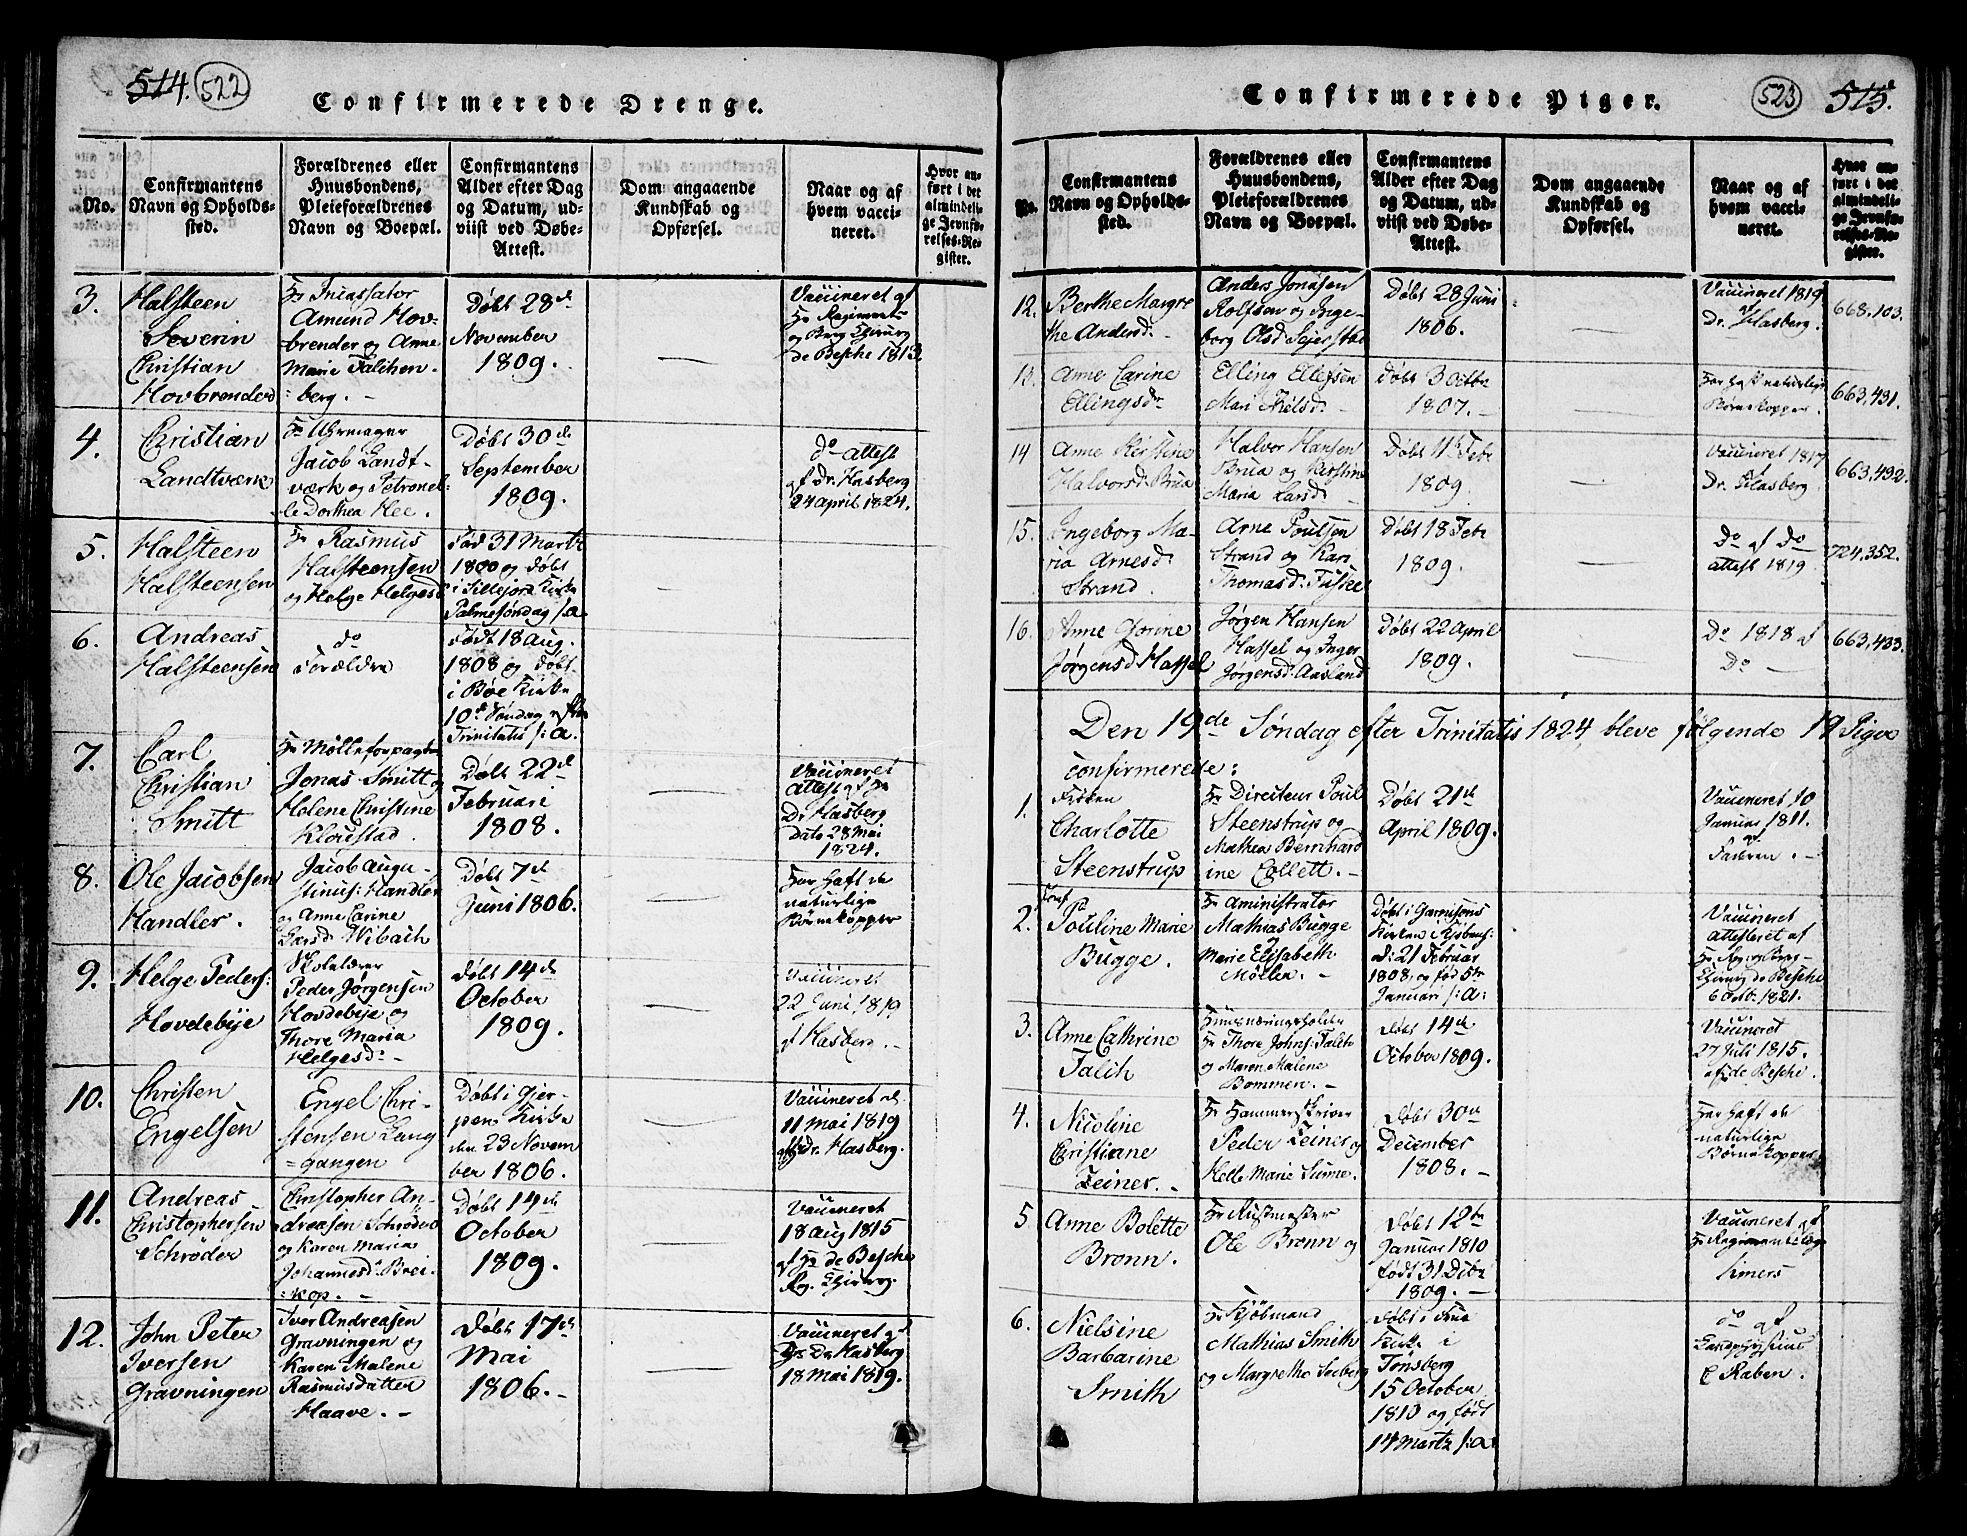 514. 522
Confirmerede Drenge.
No.
Confirmantens
Navn og Opholds-
sted.
Forældrenes eller
Huusbondens,
Pleieforældrenes
Navn og Boepæl.
Confirmantens
Alder efter Dag
og Datum, ud-
viist ved Døbe-
Attest.
Dom angaaende
Kundskab og
Opførsel.
Naar og af
hvem vacci-
neret.
Hvor an-
ført i det
almindeli-
ge Jevnfø-
relses-Re-
gister.
3.
Halsteen
Severin
Christian
Hovbrender
Hr
Amund Hov-
brender og Anne
Marie Falchen-
berg. -
Døbt 28de
November
1809.
Vaccineret af
Hr Regiments
og Berg Chirurg
de Besche 1813.
4.
Christian
Landtværk
Hr Uhrmager
Jacob Landt-
værk og Petronel-
le Dorthea Hee.
Døbt 30te
September
1809.
do attest
af Dr. Hasberg
24 april 1824.
5.
Halsteen
Halsteensen
Hr Rasmus
Halsteensen
og Helge Helgesd
Fød 31 Martz
1800 og døbt
i Sillejord Kirke
Palmesøndag s:a
6.
Andreas
Halsteensen
do
Forældre
Født 18 aug.
1808 og døbt
i Bøe Kirke
10de Søndag efter
Trinitatis s:a.
7.
Carl
Christian
Smitt
Hr Mølleforpagter
Jonas Smitt og
Helene Christine
Kloustad.
Døbt 22de
Februari
1808.
Vaccineret
attest af Hr
Dr Hasberg
Dato 28 Mai
1824.
8.
Ole Jacobsen
Handler.
Jacob Augu-
stinus: Handler
og Anne Carine
Larsd. Wibach
Døbt 7de
Juni 1806.
Har haft de
naturlige
Børnekopper
9.
Helge Peders:
Hovdebye
Skolelærer
Peder Jørgensen
Hovdebye og
Thore Maria
Helgesd:-
Døbt 14de
October
1809.
Vaccineret
22 Juni 1819
af Hasberg.-
10.
Christen
Engelsen
Engel Chri-
stensen Lang
=gangen
Døbt i Gjer-
pen Kirke
den 23 Novem
ber 1806.
Vaccineret d.
11 Mai 1819
af Dr. Hasberg.
11.
Andreas
Christophersen
Schrøder
Christopher An-
dreasen Schrøder
og Karen Maria
Johannesd: Brei-
kop. -
Døbt 19de
October
1809.
Vaccineret
18 aug 1815
af Hr de Besche
Reg. Chirurg.
12.
John Peter
Iversen
Gravningen
Iver Andreasen
Gravningen og
Karen Malene
Rasmusdatter
Haave. -
Døbt 17de
Mai
1806.-
Vaccineret af
Hr Dr Hasberg
18 Mai 1819.
Confirmerede Piger.
523 515.
No.
Confirmantens
Navn og Opholds-
sted.
Forældrenes eller
Huusbondens,
Pleieforældrenes
Navn og Boepæl.
Confirmantens
Alder efter Dag
og Datum, ud-
viist ved Døbe-
Attest.
Dom angaaende
Kundskab og
Opførsel.
Naar og af
hvem vacci-
neret.
Hvor an-
ført i det
almindeli-
ge Jevnfø-
relses-Re-
gister.
12.
Berthe Margre
the Andersd. -
Anders Jonasen
Rolfsen og Inge-
borg Olsd
Døbt 28 Juni
1806.
Vaccineret 1819
af Dr. Hasberg.
668,103.
13.
Anne Carine
Ellingsdr
Elling Ellefsen
Mari
Døbt 3 Octbr
1807. -
Har haft naturlige
Børnekopper.
663,431.
14
Anne Kirstine
Halvorsd: Brua
Halvor Hansen
Brua og Kirstine
Maria Larsd
Døbt 11te Febr
1809
Vaccineret 1817
af Dr. Hasberg.
663,432.
15.
Ingeborg Ma-
ria Arnesd
Strand.
Arne Poulsen
Strand og Kari
Thomasd: Fiskee
Døbt 18 Febr
1809.
do af do
attest 1819.
724,352.
16.
Anne Gorine
Jørgensd Hassel
Jørgen Hansen
Hassel og Inger
Jørgensd: Aasland
Døbt 22 April
1809.
Do 1818 af
Do -
663,433.
Den 19de Søndag efter Trinitatis 1824, bleve følgende 19 Piger
confirmerede:
1.
Frøken
Charlotte
Steenstrup
Hr Directeur Poul
Steenstrup og
Mathea Bernhard
ine Collett. -
Døbt 21de
April 1809.
Vaccineret 10
Januar 1811.
af Faderen. -
2.
Jomf
Pouline Marie
Bugge.
Hr Aministrator
Mathias Bugge
Marie Elisabeth
Møller. -
Døbt i Garnisons
Kirken i Kjøbenh:
d: 21 Februar
1808, og fød 5te
Januari s:a:
Vaccineret
attesteret af
Hr Reg. og Berg-
Chirurg de Besche
6 Octb. 1821.
3.
Anne Cathrine
Falch
Huusnæringsholder
Hr Thore Johns: Falch
og Maren Malene
Bommen. -
Døbt 14de
October 1809.
Vaccineret
27 Juli 1815.
af de Besche.
4.
Nicoline
Christiane
Zeiner. -
Hr Hammerskriver
Peder Zeiner og
Helle Marie Sunne.
Døbt 30te
December
1808. -
Har haft de
naturlige
Børnekopper
5
Anne Bolette
Bronn.
Hr Rustmester
Ole Bronn og
Døbt 12te
Januar 1810
født 31 Dcbr
1809. -
Vaccineret af
Hr Regimentslæge
Simers
6.
Nielsine
Barbarine
Smith
Hr Kjøbmand
Mathias Smith
og Margrethe Seeberg
Døbt i Frue
Kirke i
Tønsberg
15 October
1810 og født
14 Martz s:a:
do af
Landphysicus
C Raben.